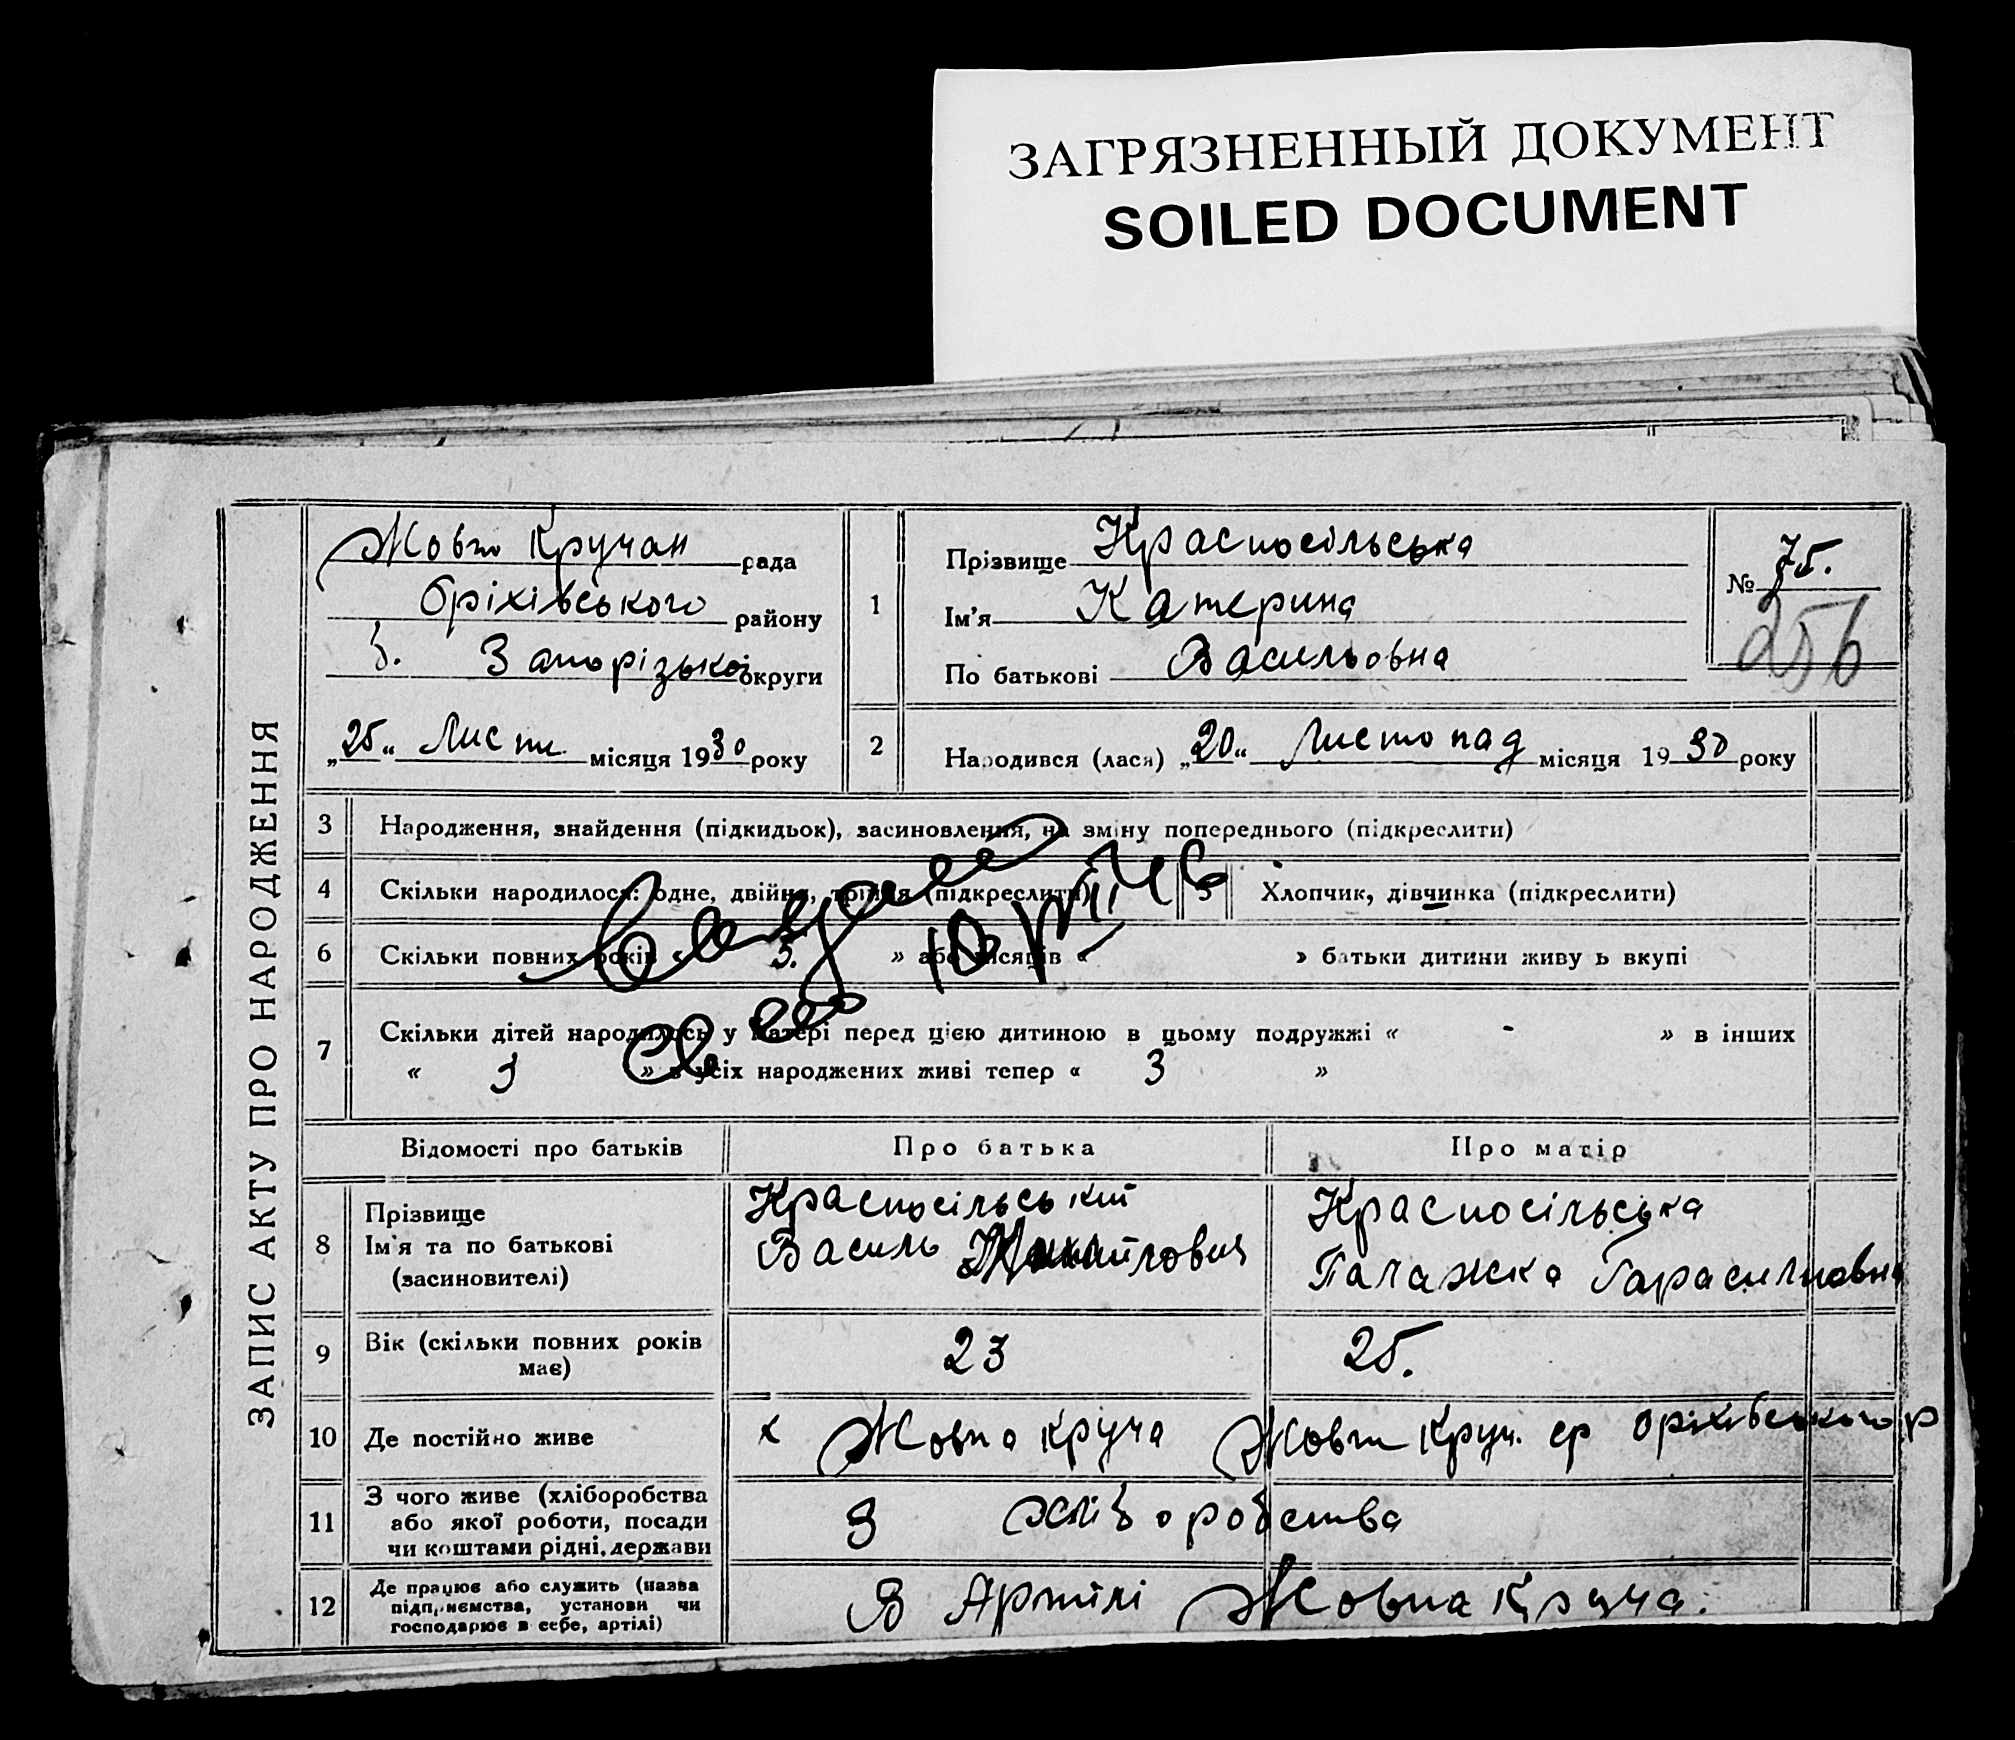 ЗАГРЯЗНЕННЫЙ ДОКУМЕНТ
SOILED DOCUMENT
ЗАПИС АКТУ ПРО НАРОДЖЕННЯ
Жовто Кручан рада
Оріхівського району
З. Запорізької округи
„25“ Листп місяця 1930 року
1
Прізвище Красносільська
Ім'я Катерина
По батькові Васильовна
№ 75.
256
2
Народився (лася) „20“ Листопад місяця 1930 року
3 Народження, знайдення (підкидьок), засиновлення, на зміну попереднього (підкреслити)
4 Скільки народилося: одне, двійня, трійня (підкреслити)
5 Хлопчик, дівчинка (підкреслити)
6 Скільки повних років « 5. » або місяців « » батьки дитини живу ь вкупі
7 Скільки дітей народилось у матері перед цією дитиною в цьому подружжі « - » в інших
« 3 » з усіх народжених живі тепер « 3 »
Відомості про батьків Про батька Про матір
8 Прізвище
Ім'я та по батькові
(засиновителі)
Красносільський
Василь
Красносільська
Палажка Гарасимовна
9 Вік (скільки повних років
має)
23
25.
10 Де постійно живе
х Жовта Круча
Жовт Круч. ср Оріхівського р
11 З чого живе (хліборобства
або якої роботи, посади
чи коштами рідні, держави
З хліборобства
12 Де працює або служить (назва
підприємства, установи чи
господарює в себе, артілі)
В Артілі Жовта Круча.